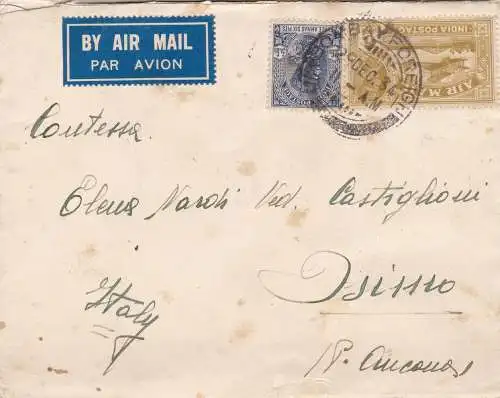 BY AIR MAIL
PAR AVION
INDIA POSTAGE
AIR MAIL
DEC. 34
A.M
Contessa
Elena Nardi Ved. Castiglioni
Osimo
Italy
(P. Ancona)